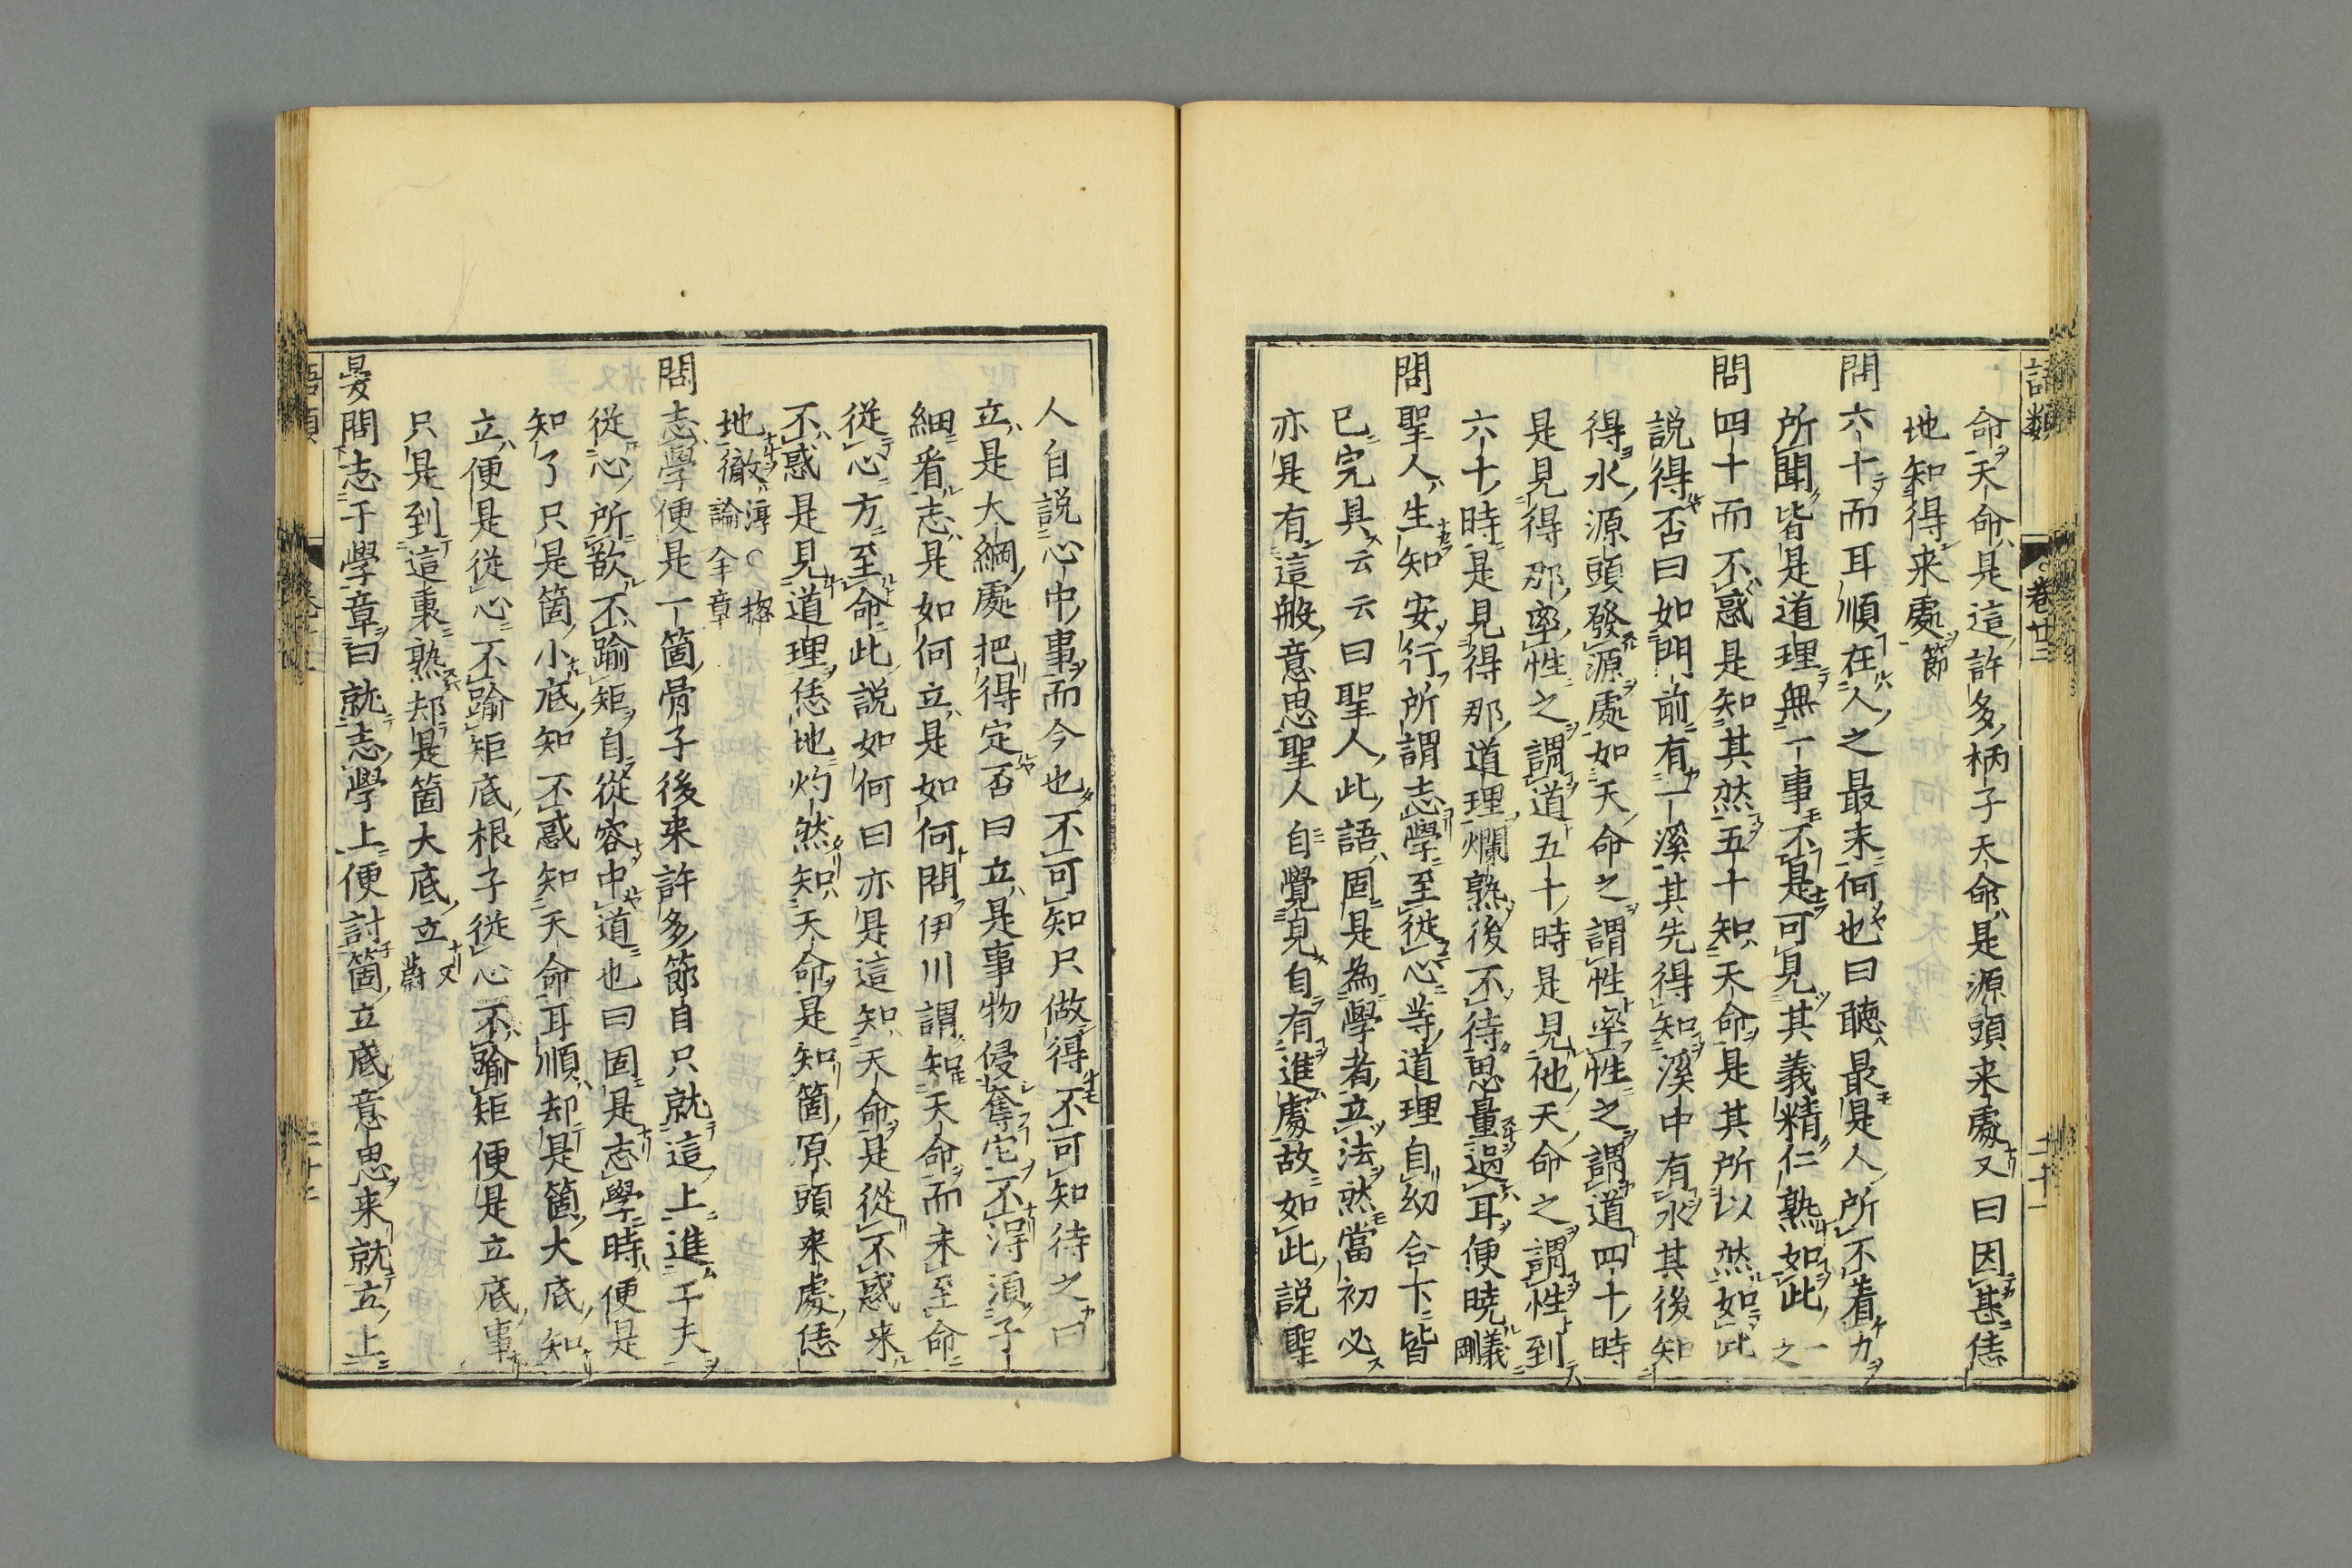 語類
卷廿三
二十一
命天命是這許多柄子天命是源頭来處又曰因甚恁
地知得来處節
問六十而耳順在人之最末何也曰聽最是人所不着力
所聞皆是道理無一事不是可見其義精仁熟如此一之
問四十而不惑是知其然五十知天命是其所以然如此
説得否曰如門前有一溪其先得知溪中有水其後知
得水源頭發源處如天命之謂性率性之謂道四十時
是見得那率性之謂道五十時是見他天命之謂性到
六十時是見得那道理爛熟後不待思量過耳便曉義剛
問聖人生知安行所謂志學至從心等道理自幼合下皆
已完具云云曰聖人此語固是為學者立法然當初必
亦是有這般意思聖人自覺見自有進處故如此説聖
人自説心中事而今也不可知只做得不可知待之曰
立是大綱處把得定否曰立是事物侵奪它不得須子
細看志是如何立是如何問伊川謂知天命而未至命
從心方至命此説如何曰亦是這知天命是從不惑来
不惑是見道理恁地灼然知天命是知箇原頭来處恁
地徹淳○總論全章
問志學便是一箇骨子後来許多節自只就這上進于夫
從心所欲不踰矩自從容中道也曰固是志學時便是
知了只是箇小底知不惑知天命耳順却是箇大底知
立便是從心不踰矩底根子從心不踰矩便是立底事
只是到這裏熟却是箇大底立文蔚
㬊問志于學章曰就志學上便討箇立底意思来就立上
語類